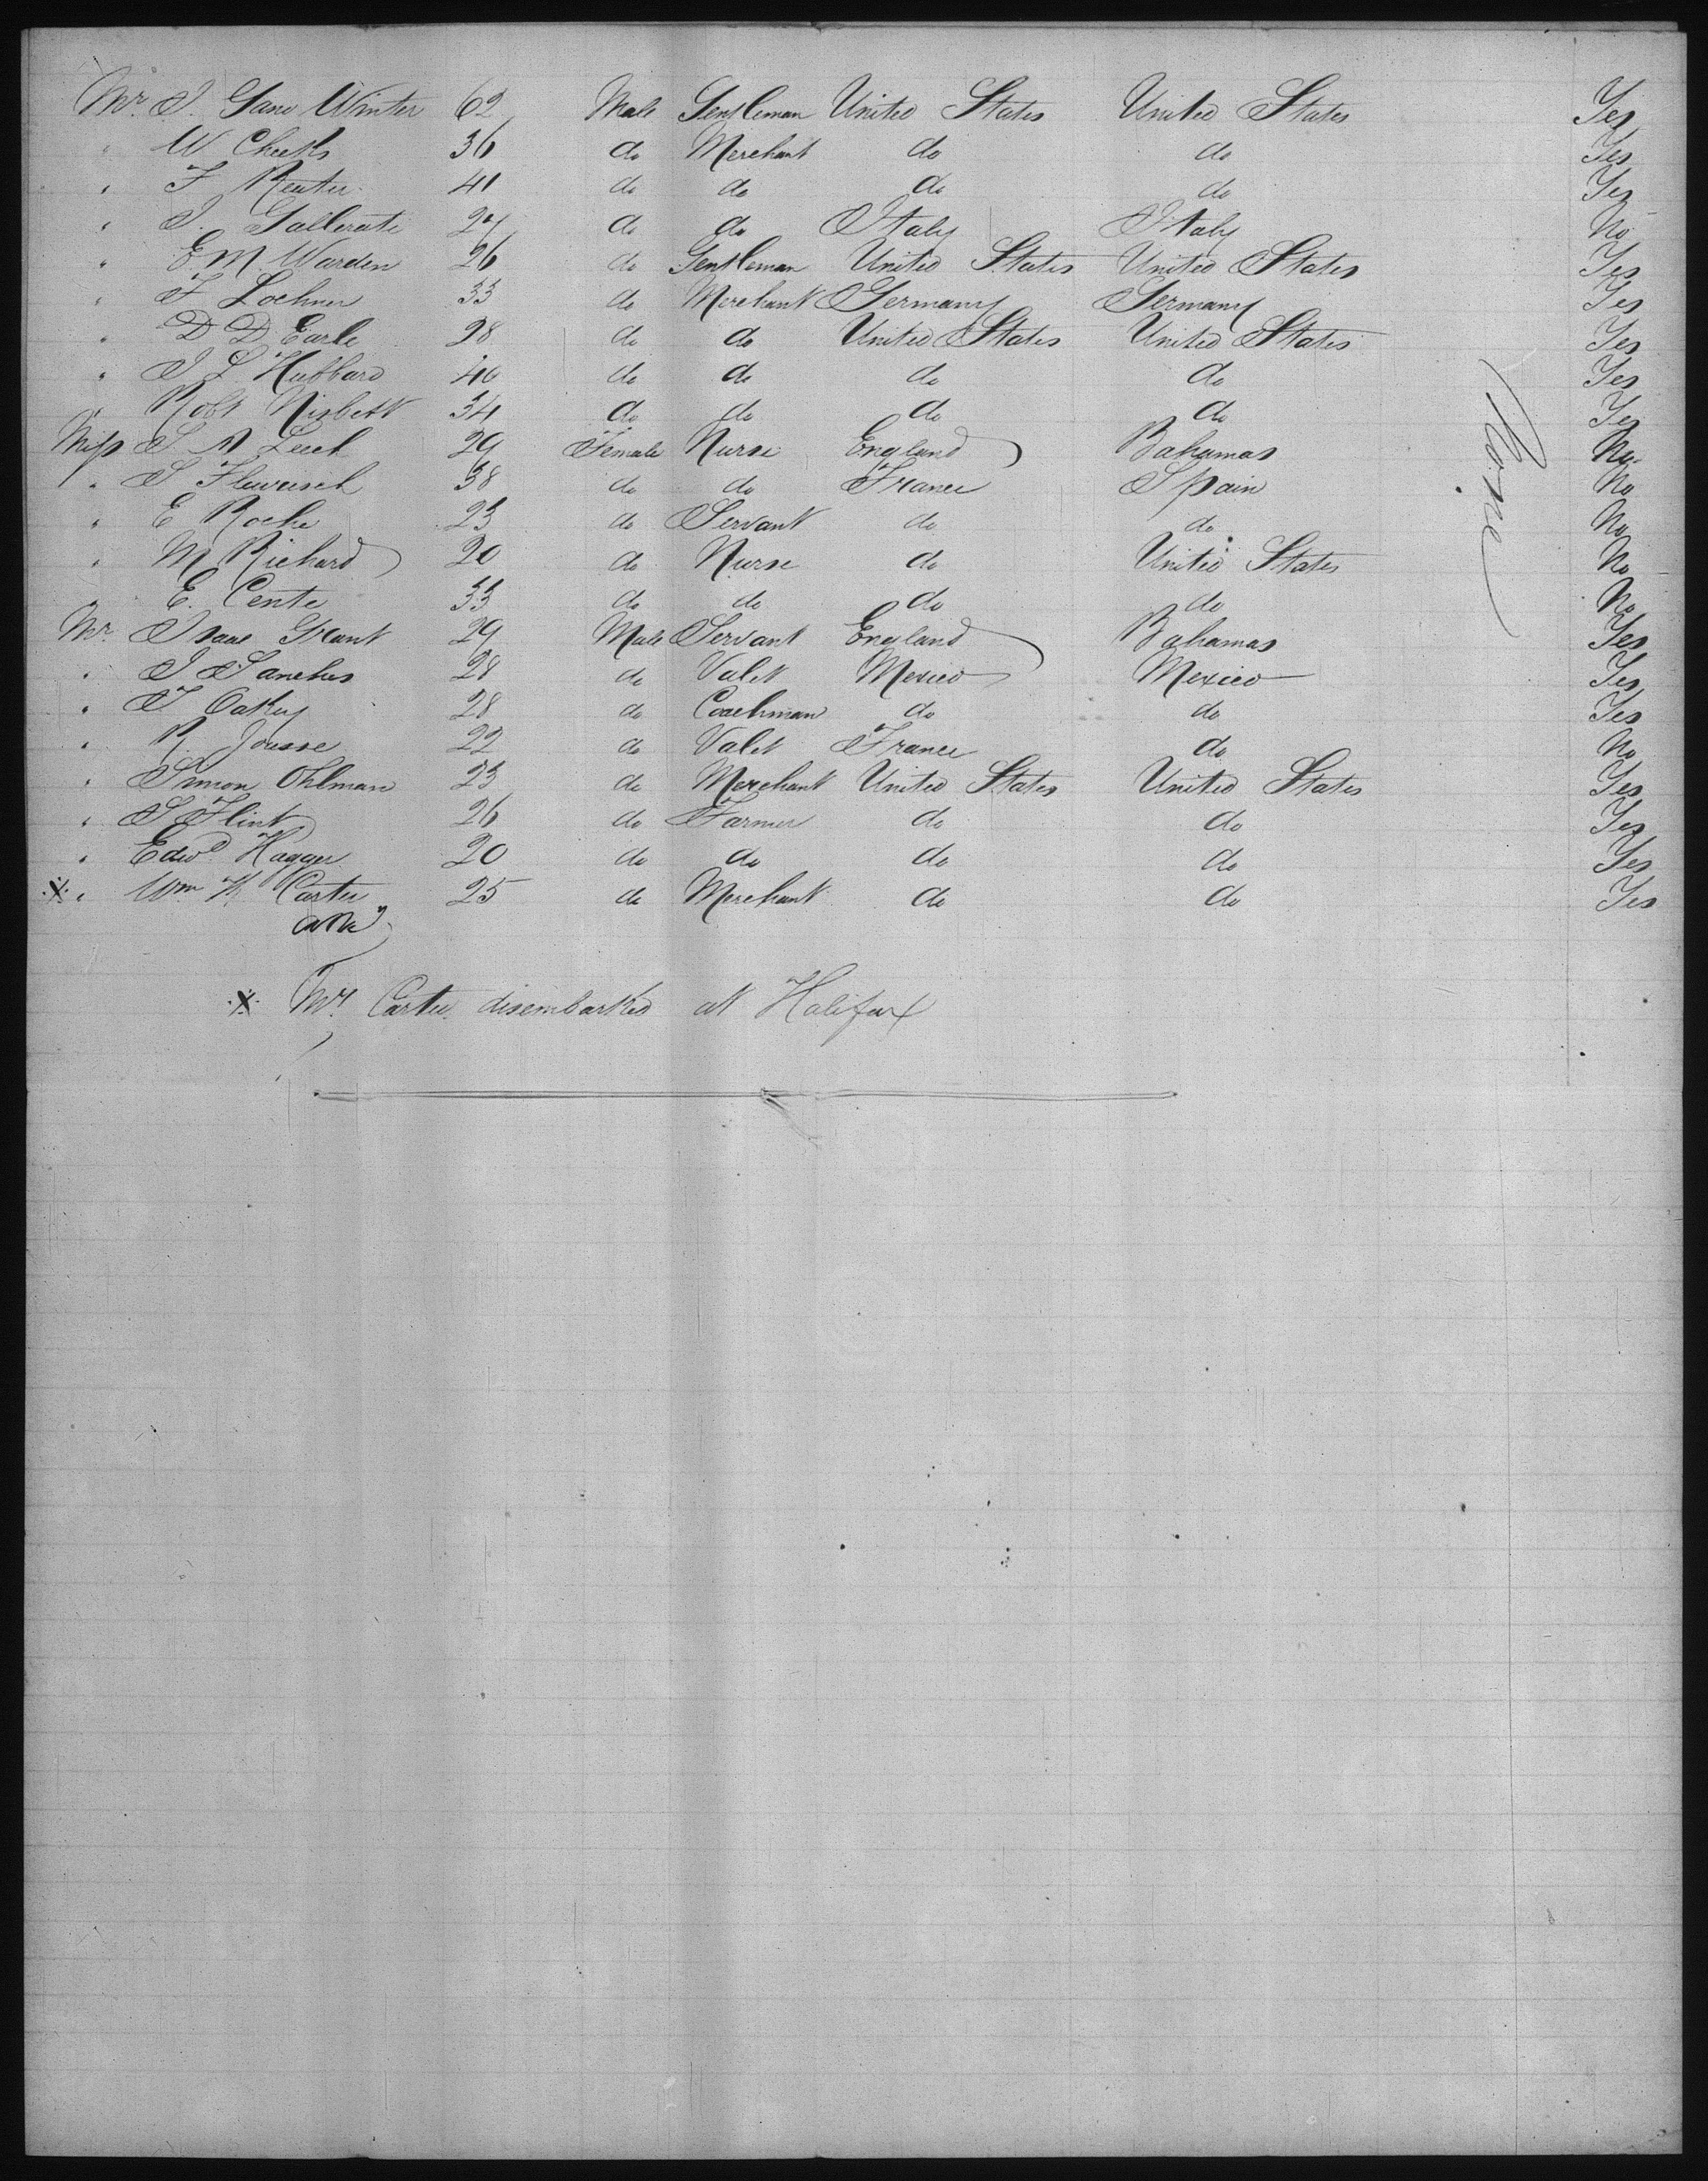 Mr. J. Gano Winter 62 Male Gentleman United States United States Yes
" W Cheeks 36 do Merchant do do Yes
" F Reuter 41 do do do do Yes
" J. Gallerati 27 do do Italy Italy No
" E M Warden 26 do Gentleman United States United States Yes
" F Lochner 33 do Merchant Germany Germany Yes
" D D Earle 28 do do United States United States Yes
" J L Hubbard 40 do do do do Yes
" Robt Nisbett 34 do do do do Yes
Miss S A Leech 29 Female Nurse England Bahamas No
" S 38 do do France Spain No
" E Roche 23 do Servant do do No
" M Richard 20 do Nurse do United States No
" E. Cente 33 do do do do No
Mr Isaac Grant 29 Male Servant England Bahamas Yes
" J Sanches 28 do Valet Mexico Mexico Yes
" T Oakey 28 do Coachman do do Yes
" R. Jousse 22 do Valet France do No
" Simon Ohlman 23 do Merchant United States United States Yes
" S Flint 26 do Farmer do do Yes
" Edwd Hagger 20 do do do do Yes
X " Wm H Carter 25 do Merchant do do Yes
None
X Mr Carter disembarked at Halifax